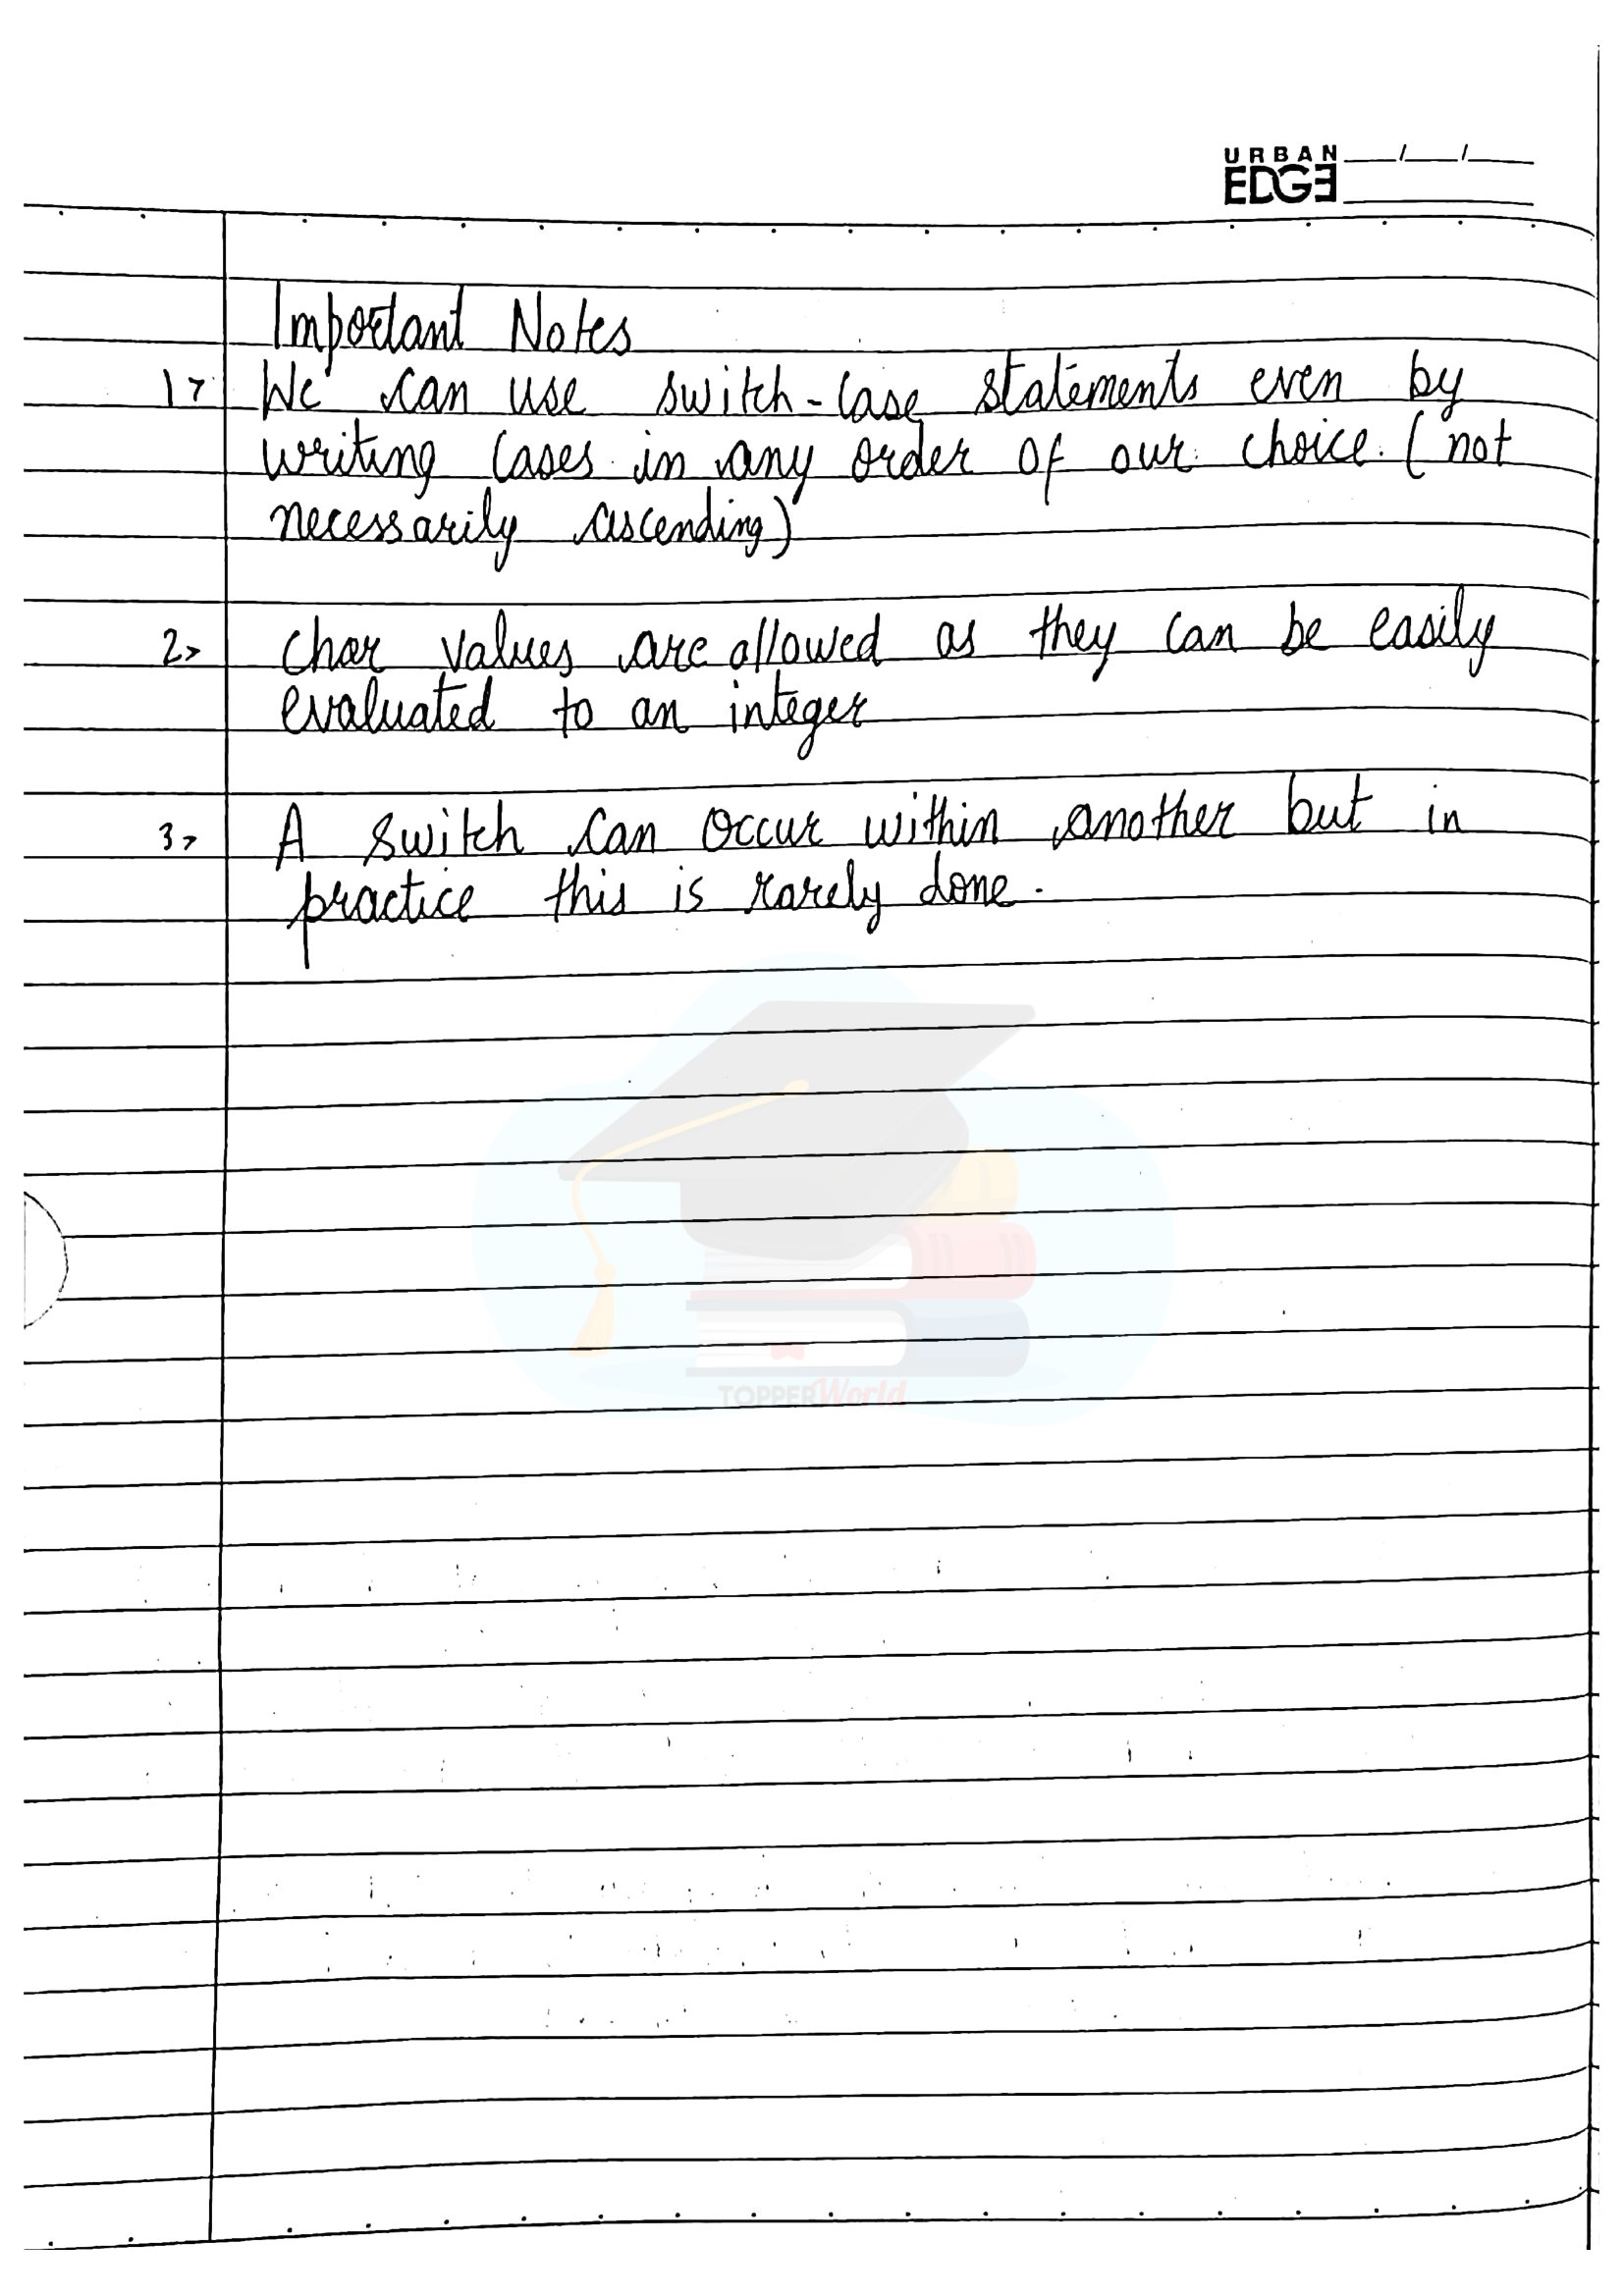 URBAN
EDGE
Important Notes
1> We can use switch-case statements even by
writing cases in any order of our choice. (not
necessarily ascending)
2> char values are allowed as they can be easily
evaluated to an integer
3> A switch can occur within another but in
practice this is rarely done.
TOPPERWorld